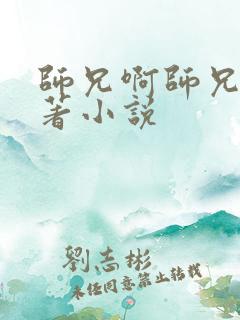 師兄啊師兄
著小説
劉志彬
未經同意禁止轉載